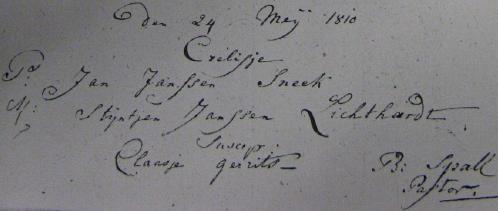 den 24 Meÿ 1810
Crelisje
P: Jan Janssen Sneek
M: Stijntjen Janssen Lichthardt
Suscepr:
Claasje Gerrits
B: Spall
Pastor.